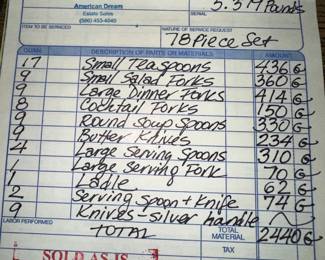 American Dream
Estate Sales
(586) 455-4040
SERIAL
5.3 M Pounds
ITEM TO BE SERVICED
NATURE OF SERVICE REQUEST
79 Piece Set
QUAN. DESCRIPTION OF PARTS OR MATERIALS AMOUNT
17 Small Teaspoons 436 G
9 Small Salad Forks 360 G
9 Large Dinner Forks 414 G
8 Cocktail Forks 150 G
9 Round Soup Spoons 330 G
9 Butter Knives 234 G
4 Large Serving Spoons 310 G
1 Large Serving Fork 70 G
1 Ladle 62 G
2 Serving Spoon + Knife 74 G
9 Knives - Silver handle ~
LABOR PERFORMED
TOTAL
TOTAL MATERIAL 2440 G
TAX
SOLD AS IS